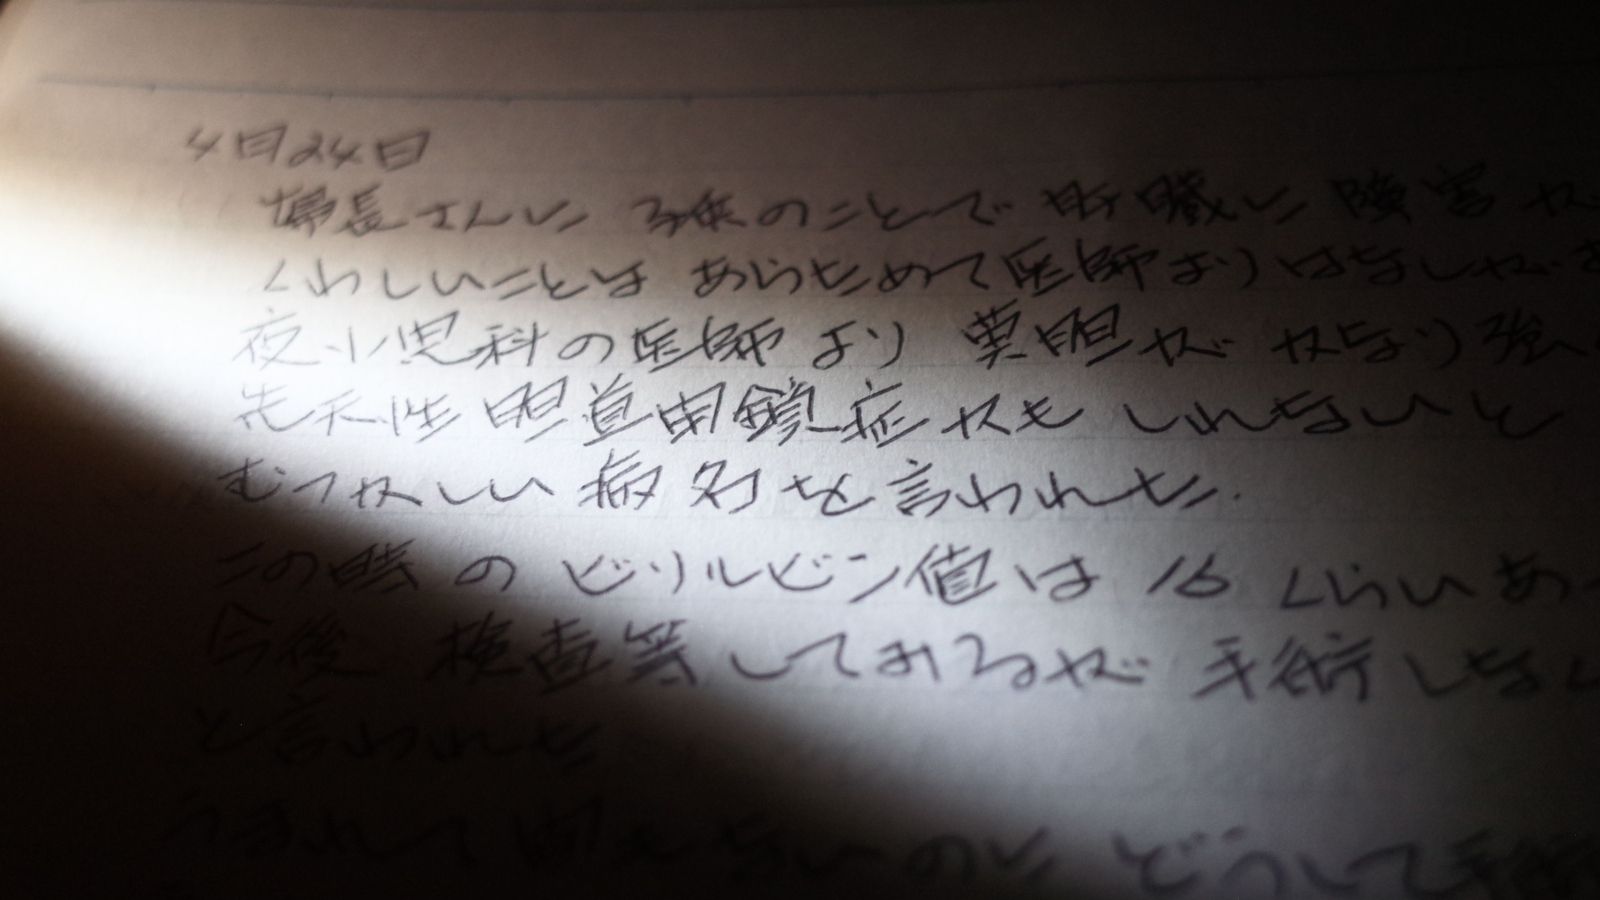 4月24日
婦長さんに 子供のことで 肝臓に 障害が
くわしいことは あらためて医師よりはなしが
夜小児科の医師より 黄胆が かなり強
先天性胆道閉鎖症かも しれないと
むつかしい病名を言われた.
この時のビリルビン値は 16 くらいあ
今後 検査等しておるが 手術しな
と言われた
うまれて間もないのに どうして手術